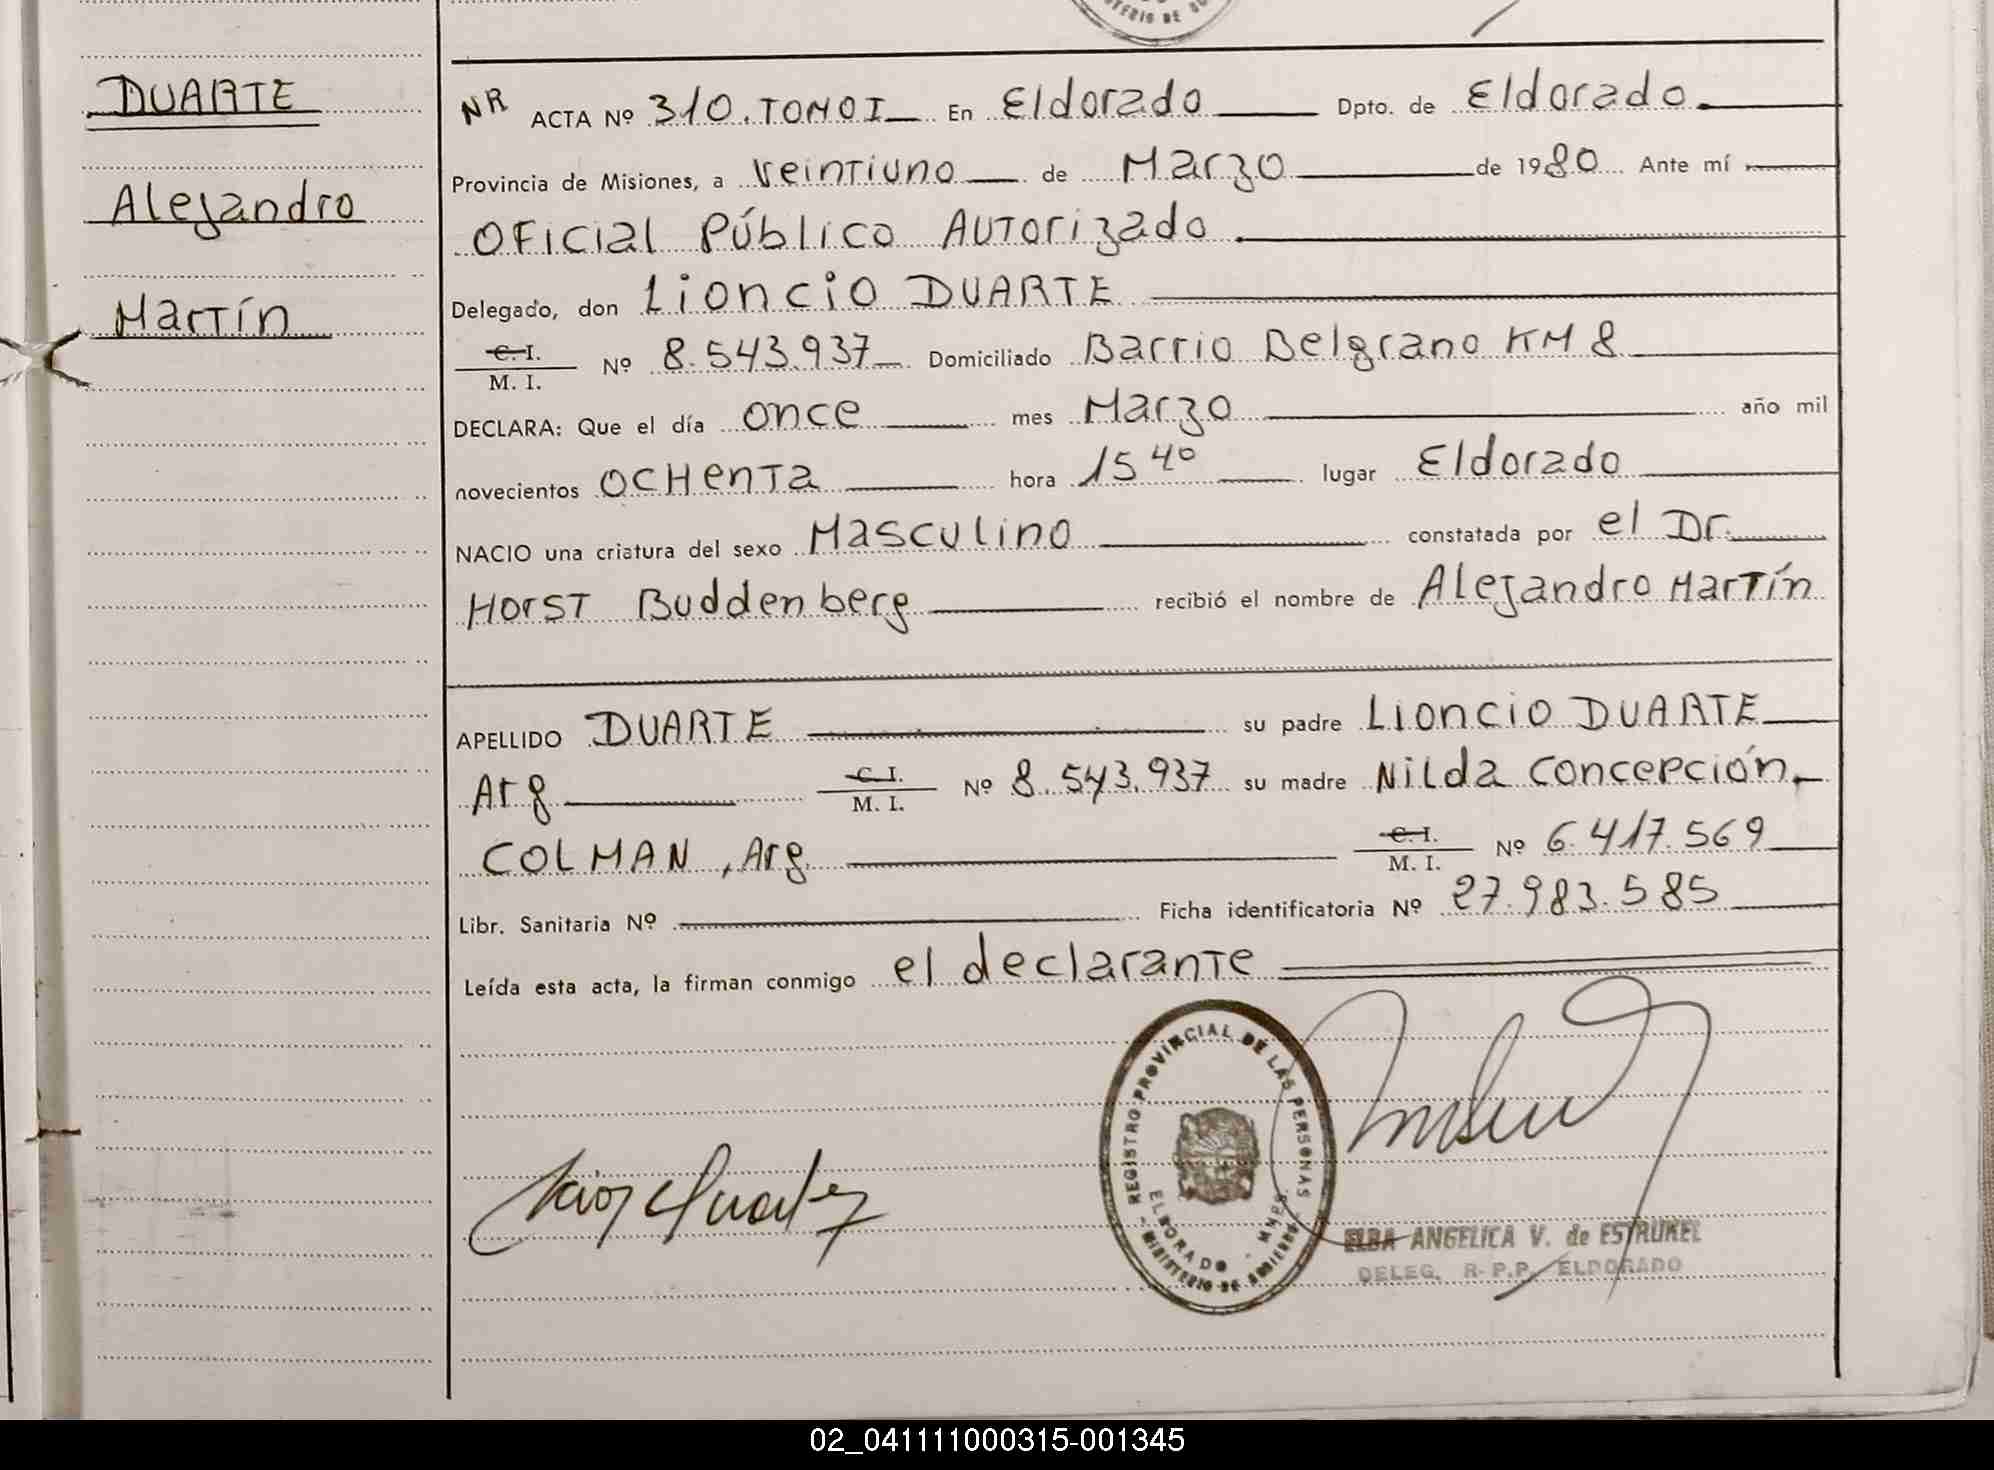 DUARTE
Alejandro
Martín
NR ACTA Nº 310. TOMO I En Eldorado Dpto. de Eldorado
Provincia de Misiones, a veintiuno de Marzo de 1980 Ante mí
Oficial Público Autorizado
Delegado, don Lioncio DUARTE
C. I. M. I. Nº 8.543.937 Domiciliado Barrio Belgrano KM 8
DECLARA: Que el día once mes Marzo año mil
novecientos OCHENTA hora 15 40 lugar Eldorado
NACIO una criatura del sexo Masculino constatada por el Dr.
HORST Buddenberg recibió el nombre de Alejandro Martín
APELLIDO DUARTE su padre Lioncio DUARTE
Arg C. I. M. I. Nº 8.543.937 su madre Nilda Concepción
COLMAN, Arg. C. I. M. I. Nº 6.417.569
Libr. Sanitaria Nº Ficha identificatoria Nº 27.983.585
Leída esta acta, la firman conmigo el declarante
REGISTRO PROVINCIAL DE LAS PERSONAS
ELDORADO - MNES.
MINISTERIO DE GOBIERNO
ELBA ANGELICA V. de ESTRUKEL
DELEG. R. P.P. ELDORADO
02_041111000315-001345